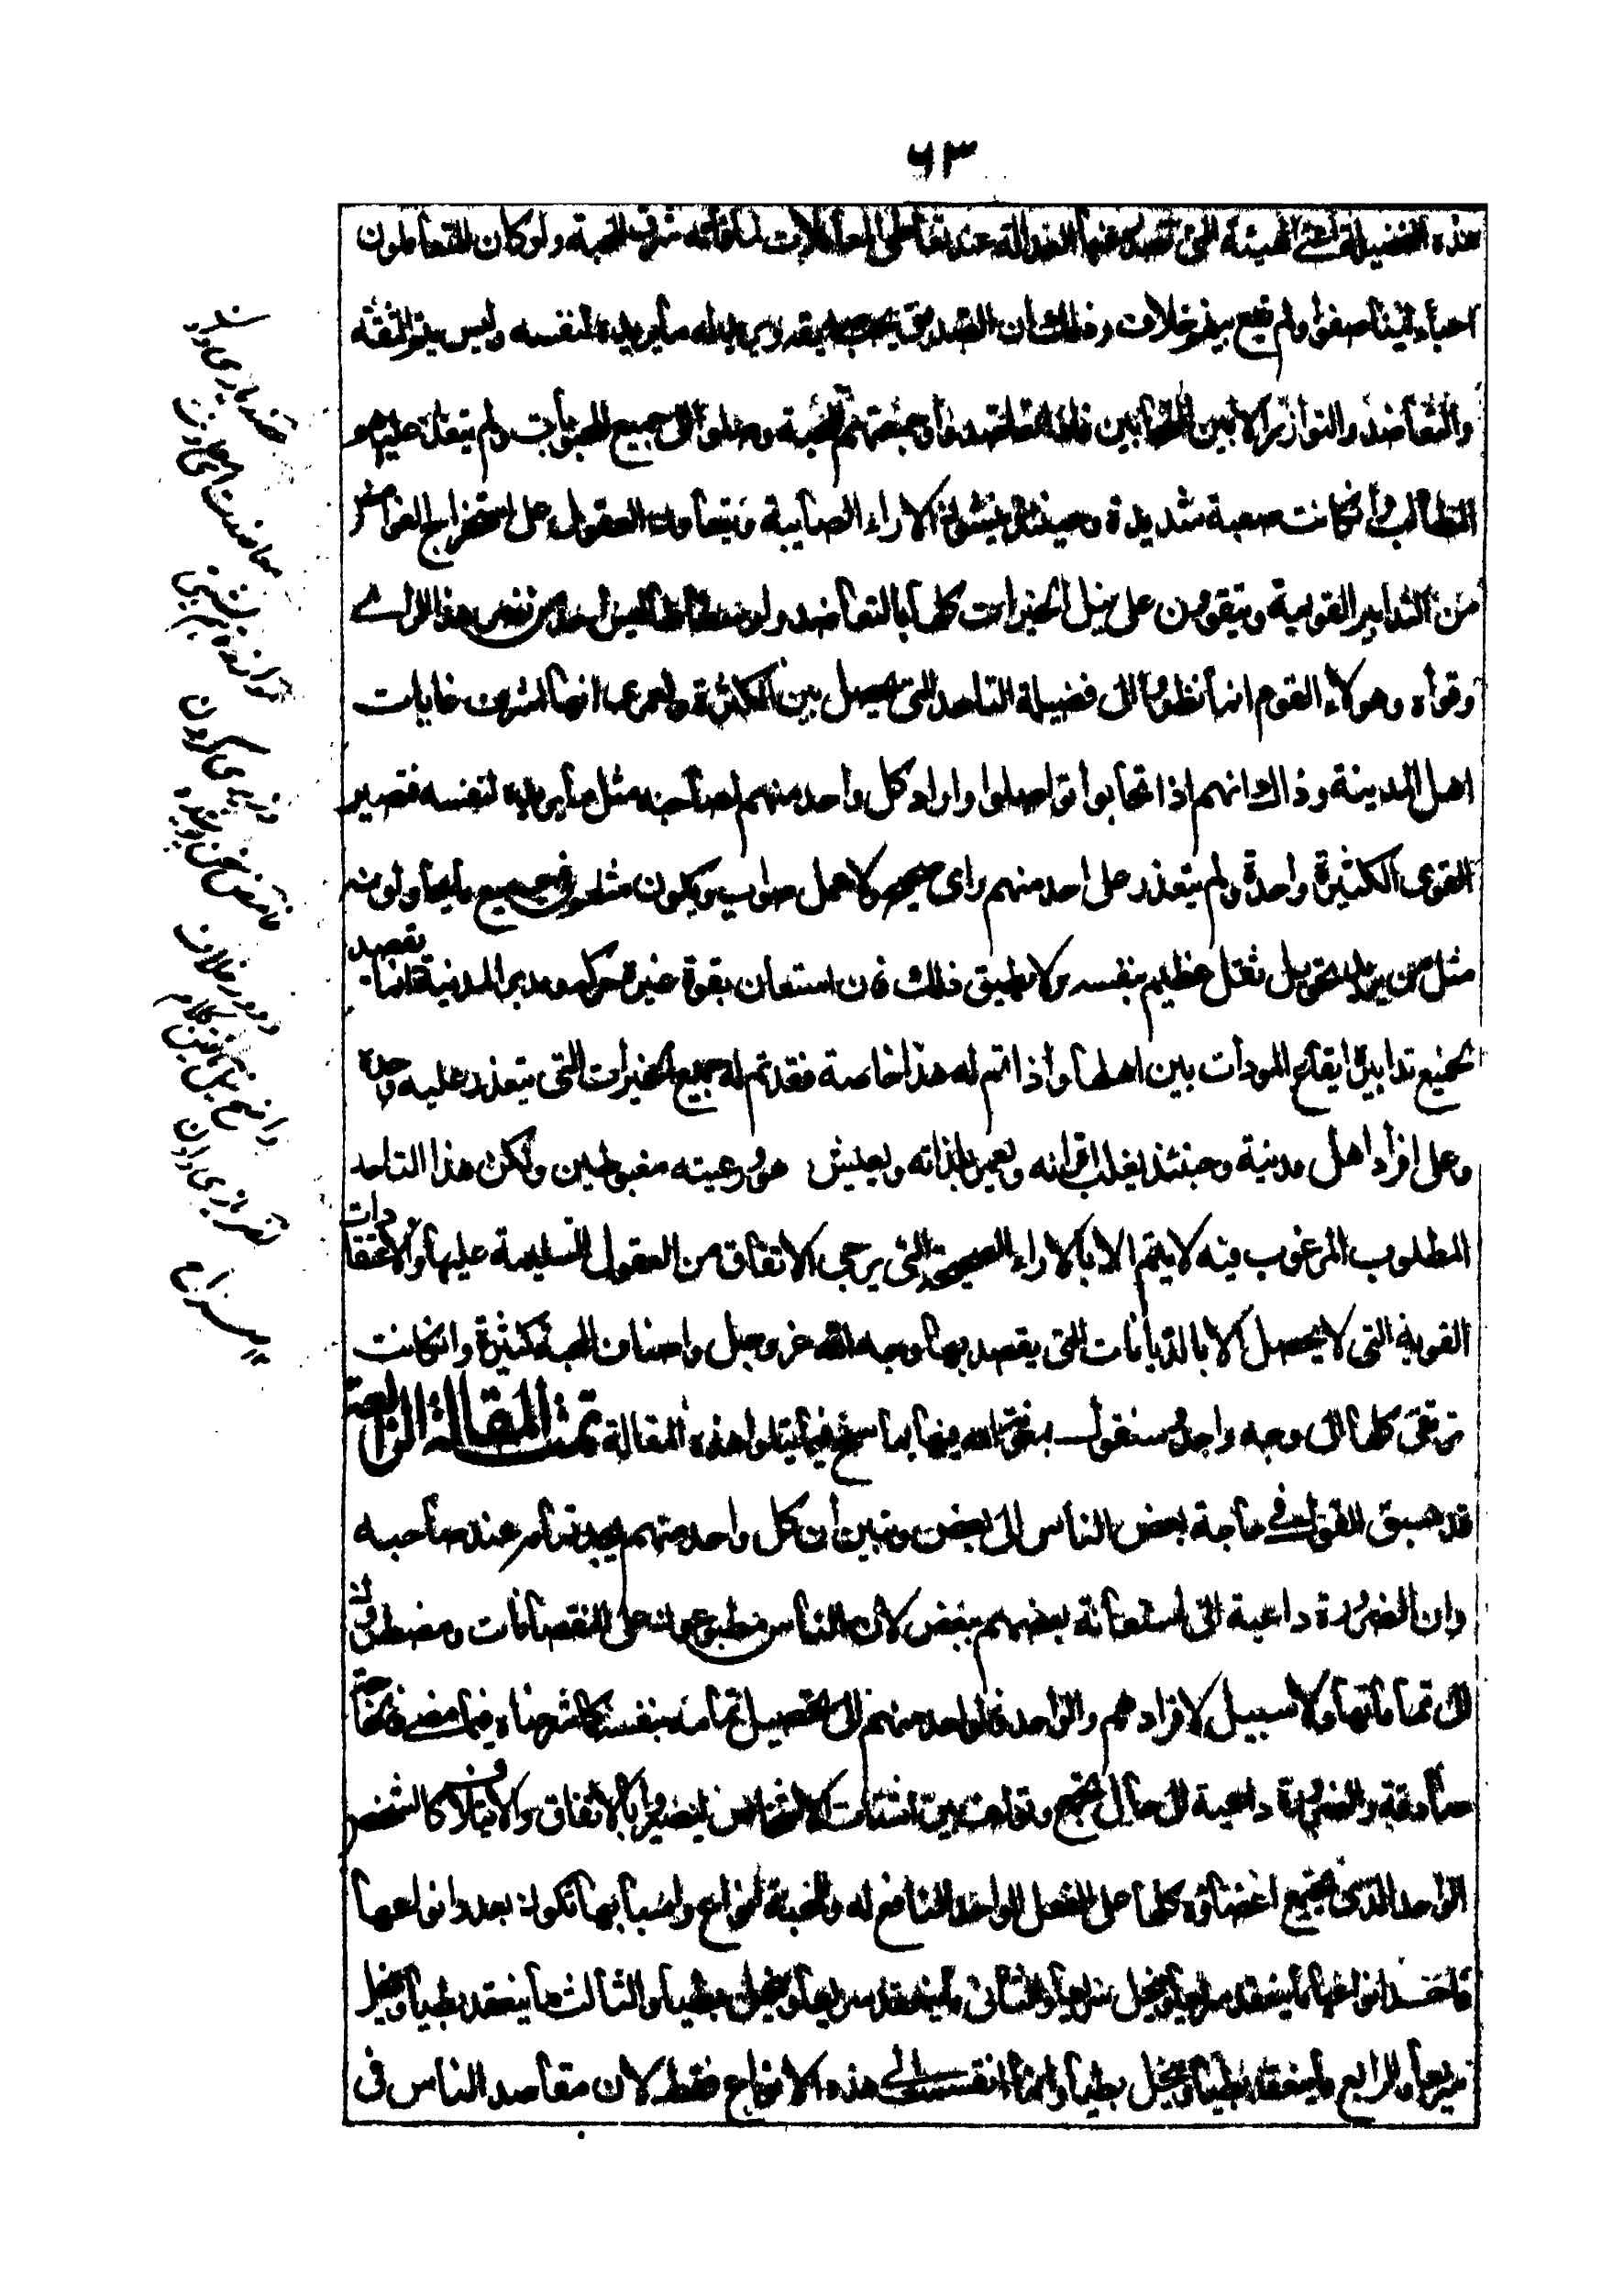 ٦٣
هذه الفضيلة اعنى الهيئة التى تصدر عنها العدالة عند تعاطى المعاملات لما فاته شرف المحبة ولو كان المتعاملون
احباء لتناصفوا ولم يقع بينهم خلاف وذلك ان الصديق يحب صديقه ويريد له ما يريده لنفسه وليس يتم الثقة
والتعاضد والتوازر الا بين المتحابين فاذا تعاضدوا وجمعتهم المحبة وصلوا الى جميع المحبوبات ولم يتعذر عليهم
المطالب وان كانت صعبة شديدة وحينئذ ينشئون الاراء الصايبة وتتعاون العقول على استخراج الغوامض
من التدابير القويمة ويتقوون على نيل الخيرات كلها بالتعاضد
وهولاء القوم انما نظروا الى فضيلة التاحد التى تحصل بين الكثرة ولعمرى انها اشرف غايات
اهل المدينة وذلك انهم اذا تحابوا تواصلوا واراد كل واحد منهم لصاحبه مثل ما يريده لنفسه فتصير
القوى الكثيرة واحدة ولم يتعذر على احد منهم راى صحيح ولا عمل صواب ويكون مثلهم فى جميع ما يحاولونه
مثل من يريد تحريك ثقل عظيم بنفسه ولا يطيق ذلك فان استعان بقوة غيره حركه ومدبر المدينة انما يقصد
بجميع تدابيره ايقاع المودات بين اهلها واذا تم له هذا خاصة فقد تم له جميع الخيرات التى يتعذر عليه وحده
وعلى افراد اهل مدينة وحينئذ يغلب اقرانه ويعمر بلدانه ويعيش هو ورعيته مغبوطين ولكن هذا التاحد
المطلوب المرغوب فيه لا يتم الا بالاراء الصحيحة التى يرجى الاتفاق من العقول السليمة عليها والاعتقادات
القوية التى لا تحصل الا بالديانات التى يقصد بها وجه الله عز وجل واصناف المحبة كثيرة وان كانت
ترتقى كلها الى وجه واحد وسنقول بمعونة الله فيها بما سنح فيما يتلوا هذه المقالة تمت المقالة الرابعة
قد سبق القول فى حاجة بعض الناس الى بعض وتبين ان كل واحد منهم يجد تمامه عند صاحبه
وان الضرورة داعية الى استعانة بعضهم ببعض لان الناس مطبوعون على النقصانات ومضطرون
الى تماماتها ولا سبيل لافرادهم والواحد فالواحد منهم الى تحصيل تمامه بنفسه كما شرحناه فيما مضى فالحاجة
صادقة والضرورة داعية الى حال تجمع وتولف بين اشتات الاشخاص ليصيروا بالاتفاق والايتلاف كالشخص
الواحد الذى تجتمع اعضاؤه كلها على الفعل الواحد النافع له والمحبة انواع واسبابها تكون بعدد انواعها
فاحد انواعها ما ينعقد سريعا وينحل سريعا والثانى ما ينعقد سريعا وينحل بطيا والثالث ما ينعقد بطيا وينحل
سريعا والرابع ما ينعقد بطيا وينحل بطيا وانما انقسمت الى هذه الانواع فقط لان مقاصد الناس فى